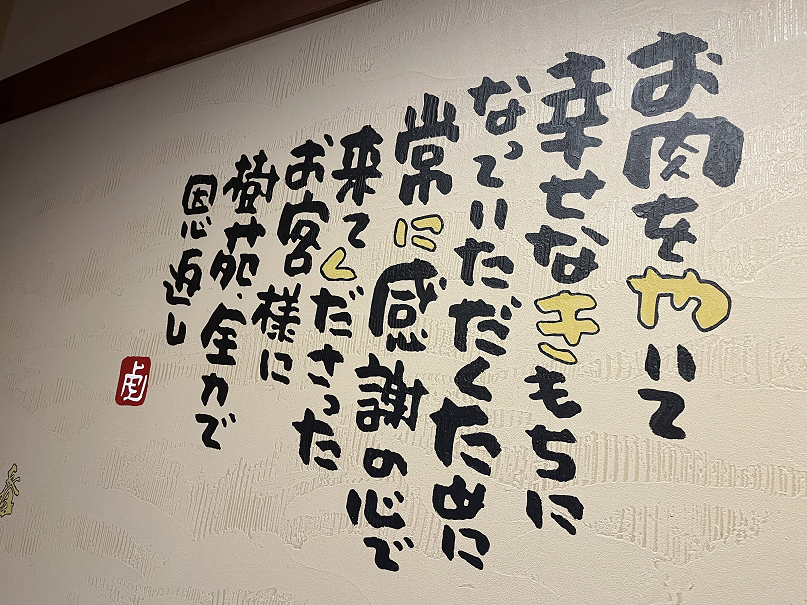 お肉をやいて
幸せなきもちに
なっていただくために
常に感謝の心で
来てくださった
お客様に
樹苑、全力で
恩返し